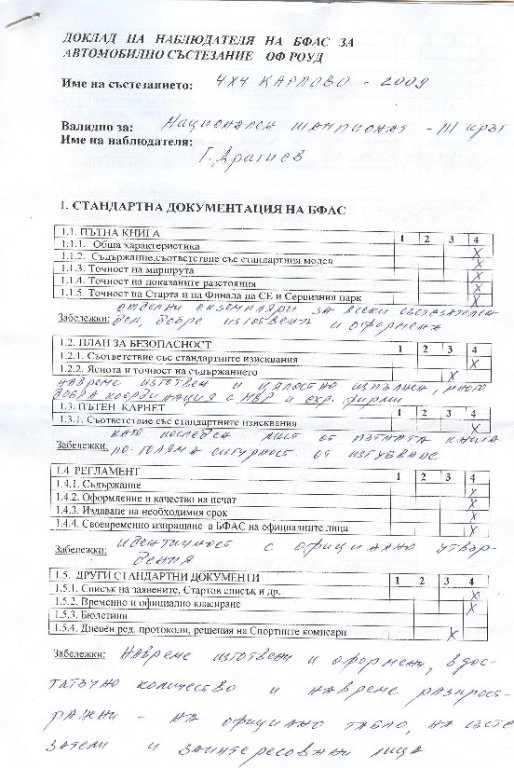 ДОКЛАД НА НАБЛЮДАТЕЛЯ НА БФАС ЗА
АВТОМОБИЛНО СЪСТЕЗАНИЕ ОФ РОУД
Име на състезанието: 4X4 КАРЛОВО - 2009
Валидно за: Национален шампионат - III кръг
Име на наблюдателя:
Г. Драгиев
1. СТАНДАРТНА ДОКУМЕНТАЦИЯ НА БФАС
1.1. ПЪТНА КНИГА 1 2 3 4
1.1.1. Обща характеристика X
1.1.2. Съдържание,съответствие със стандартния модел X
1.1.3. Точност на маршрута X
1.1.4. Точност на показаните разстояния X
1.1.5. Точност на Старта и на Финала на СЕ и Сервизния парк X
отделни екземпляри за всеки състезателен
Забележки: ден, добре изготвена и оформена
1.2. ПЛАН ЗА БЕЗОПАСНОСТ 1 2 3 4
1.2.1. Съответствие със стандартните изисквания X
1.2.2. Яснота и точност на съдържанието X
навреме изготвен и цялостно изпълнен, много
добра координация с МВР и охр. фирми
1.3. ПЪТЕН КАРНЕТ 1 2 3 4
1.3.1. Съответствие със стандартните изисквания X
като последен лист от пътната книга
Забележки: по-голяма сигурност от изгубване
1.4 РЕГЛАМЕНТ 1 2 3 4
1.4.1. Съдържание X
1.4.2. Оформление и качество на печат X
1.4.3. Издаване на необходимия срок X
1.4.4. Своевременно изпращане в БФАС на официалните лица X
Забележки: идентичност с официално утвър-
дения
1.5. ДРУГИ СТАНДАРТНИ ДОКУМЕНТИ 1 2 3 4
1.5.1. Списък на заявените, Стартов списък и др. X
1.5.2. Временно и официално класиране X
1.5.3. Бюлетини
1.5.4. Дневен ред, протоколи, решения на Спортните комисари X
Забележки: навреме изготвени и оформени, в дос-
татъчно количество и навреме разпрост-
ражни - на официално табло, на състе
затели и заинтересовани лица